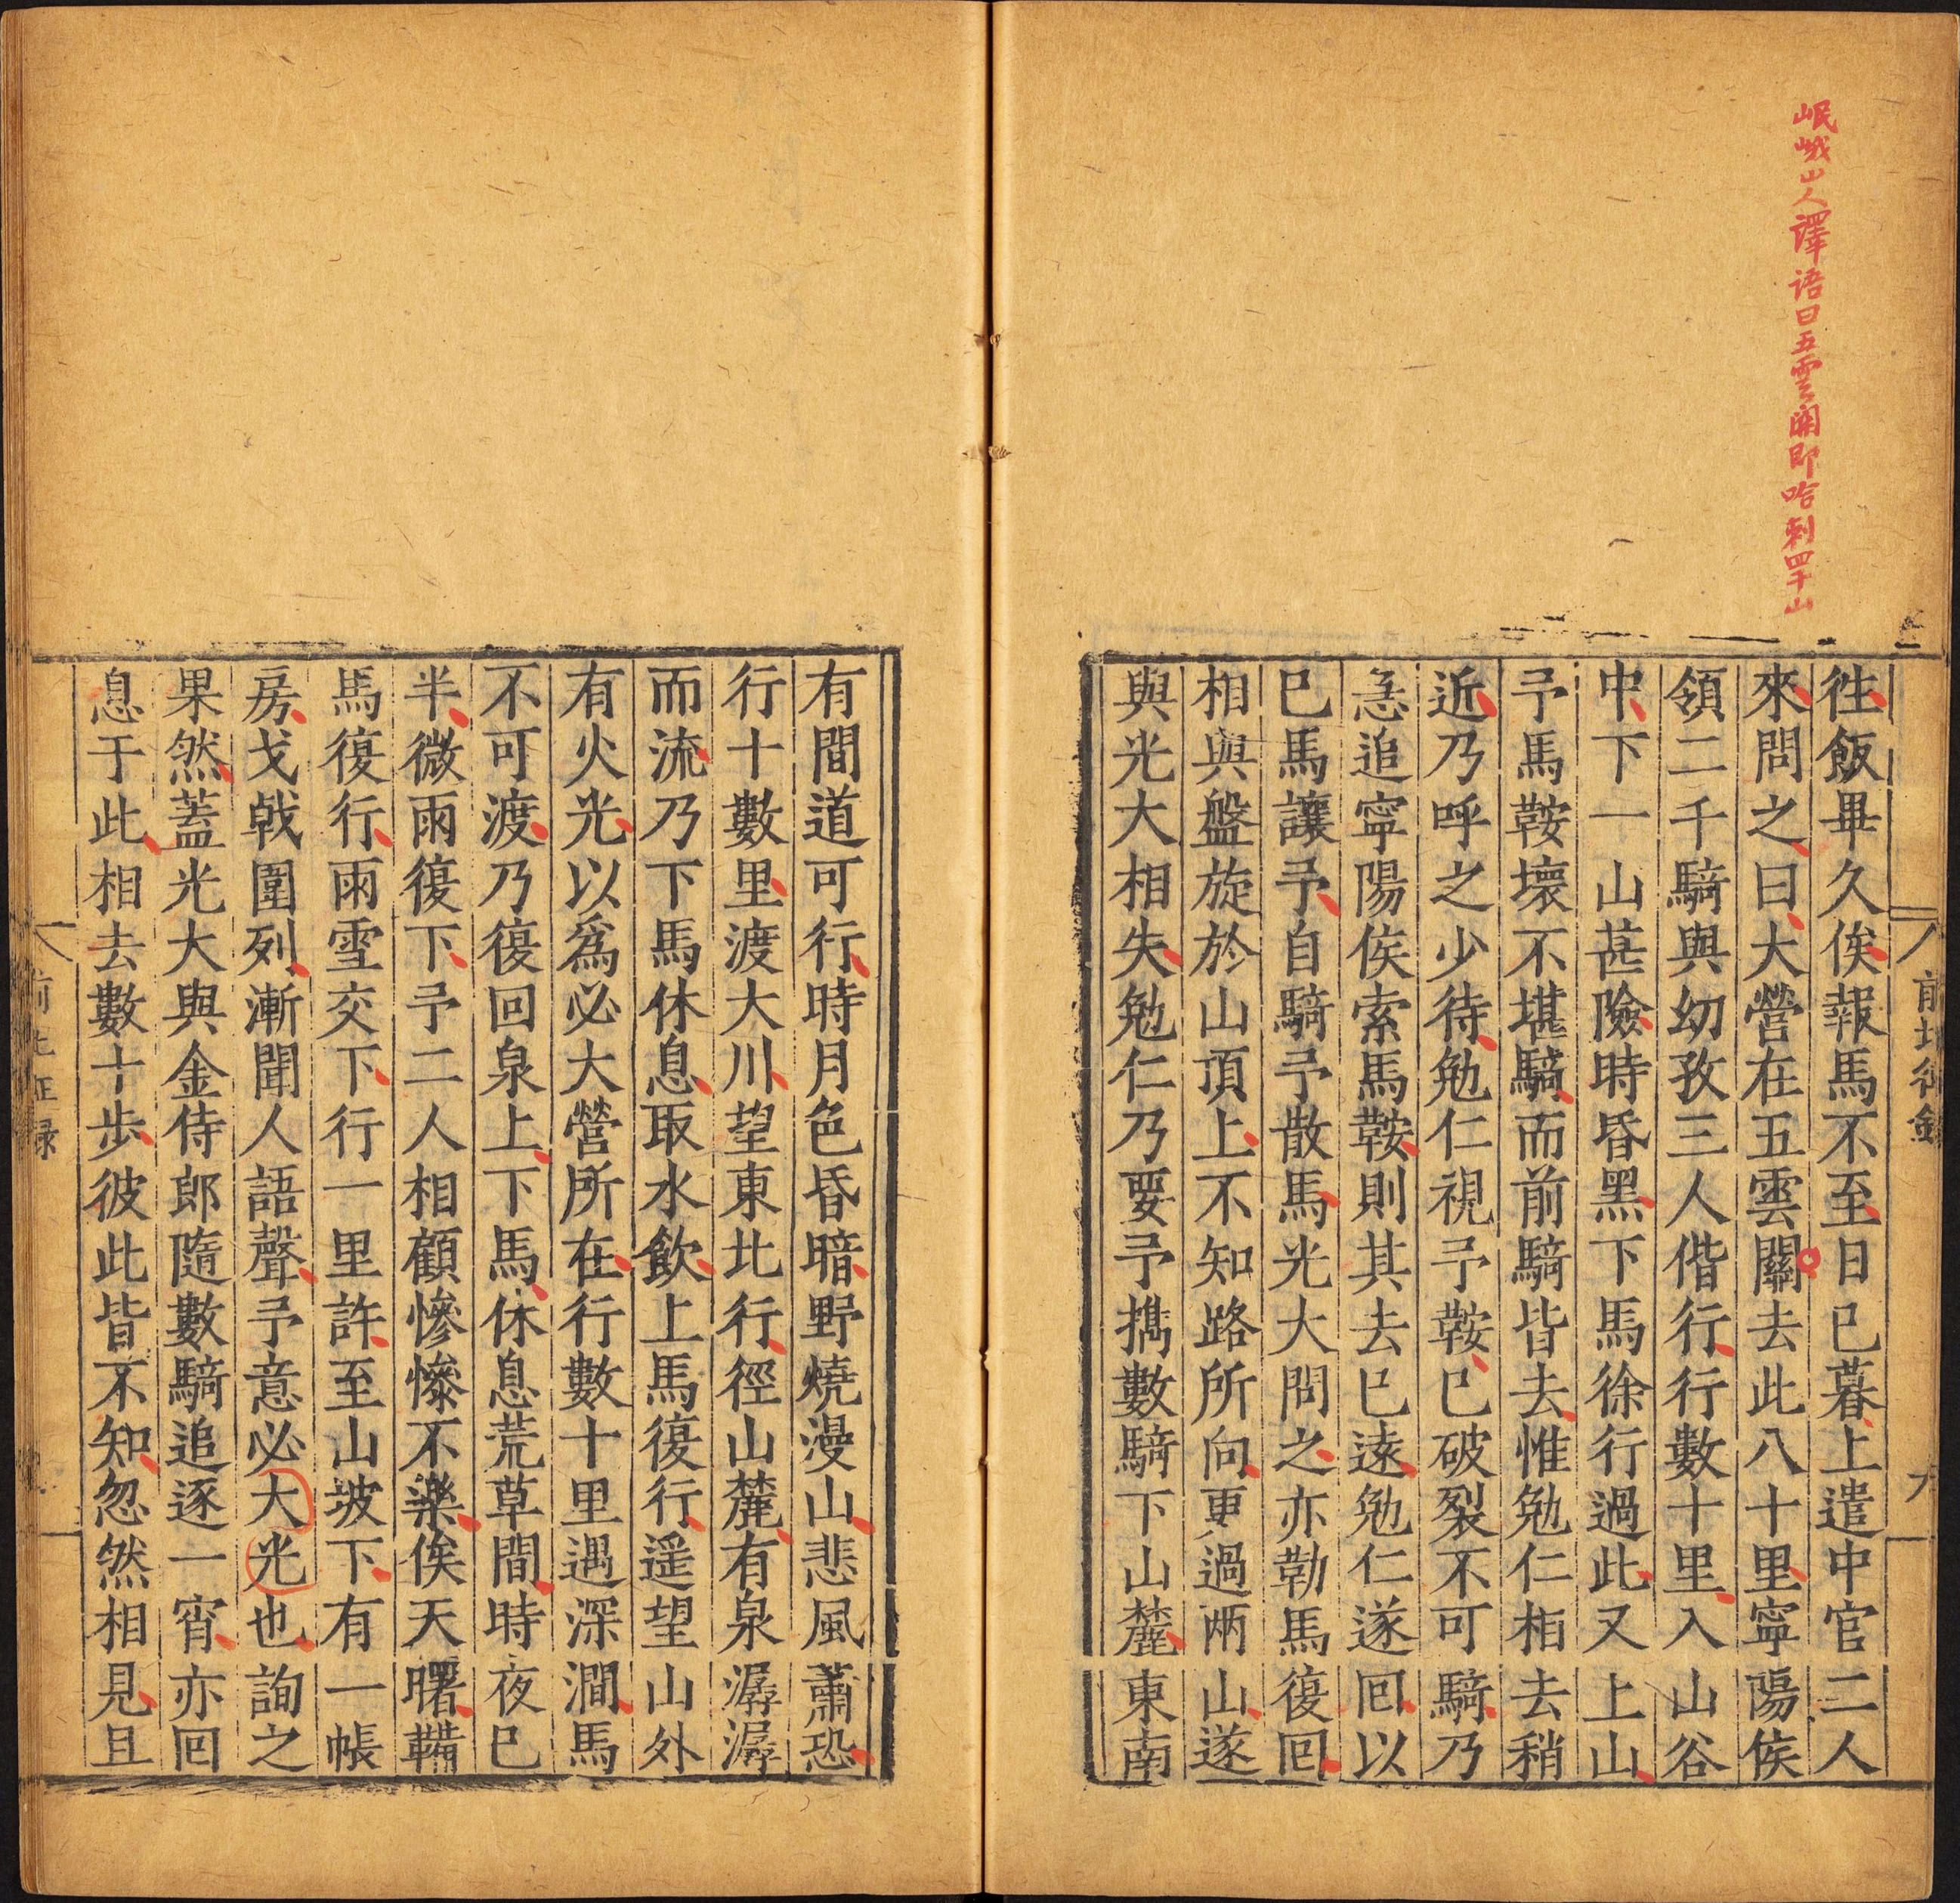 岷峨山人譯語曰五雲關即哈剌罕山
徃飯畢久俟報馬不至日已暮上遣中官二人
來問之曰大營在五雲關去此八十里寧陽侯
領二千騎與幼孜三人偕行行數十里入山谷
中下一山甚險時昏黑下馬徐行過此又上山
予馬鞍壞不堪騎而前騎皆去惟勉仁相去稍
近乃呼之少待勉仁視予鞍已破裂不可騎乃
急追寧陽侯索馬鞍則其去已遠勉仁遂回以
已馬讓予自騎予散馬光大問之亦勒馬復回
相與盤旋於山頂上不知路所向更過兩山遂
與光大相失勉仁乃要予擕數騎下山麓東南
有間道可行時月色昏暗野燒漫山悲風蕭恐
行十數里渡大川望東北行徑山麓有泉潺潺
而流乃下馬休息取水飲上馬復行遥望山外
有火光以爲必大營所在行數十里遇深澗馬
不可渡乃復回泉上下馬休息荒草間時夜已
半微雨復下予二人相顧慘慘不樂俟天曙鞴
馬復行雨雪交下行一里許至山坡下有一帳
房戈戟圍列漸聞人語聲予意必大光也詢之
果然蓋光大與金侍郎隨數騎追逐一宵亦回
息于此相去數十步彼此皆不知忽然相見且